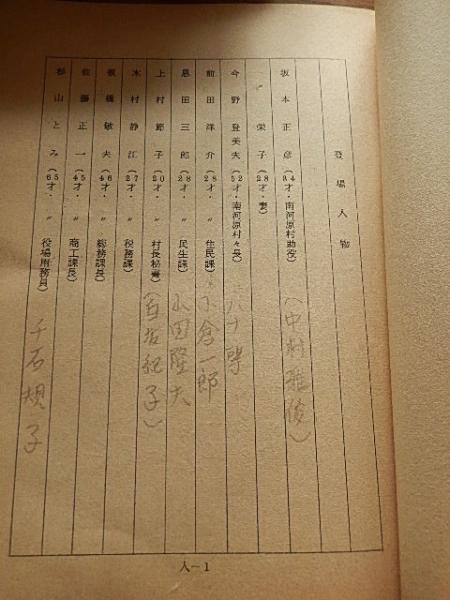 登場人物
坂本正彦（34才・南河原村助役）（中村雅俊）
栄子（28才・妻）
今野登美夫（52才・南河原村々長）
前田洋介（28才・〃 住民課）小倉一郎
恩田三郎（28才・〃 民生課）小田隆夫
上村節子（20才・〃 村長秘書）
木村静江（27才・〃 税務課）
板橋敏夫（46才・〃 総務課長）
佐藤正一（45才・〃 商工課長）
杉山とみ（65才・〃 役場用務員）千石規子
人－1